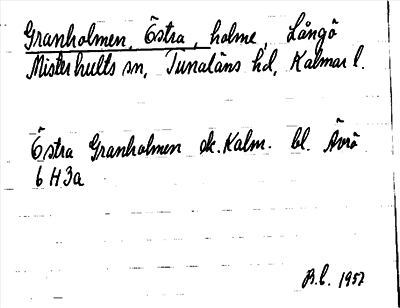 Granholmen, Östra, holme, Långö
Misterhults sn, Tunaläns hd, Kalmar l.
Östra Granholmen ek. Kalm. bl. Ävrö
6 H 3a
B.L. 1957